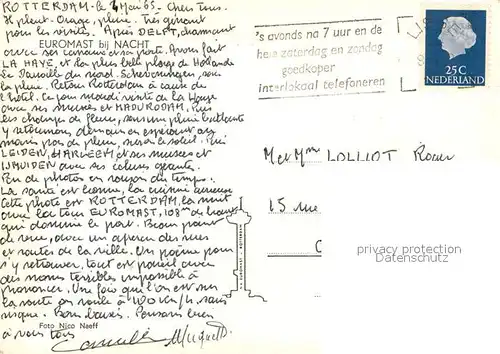 ROTTERDAM - le 4 Mai 65 - Chers tous.
Il pleut. Orage, pluie. Très gênant
pour les visites. Après DELFT, charmant
EUROMAST bij NACHT
avec ses canaux et son porte. Avons fait
LA HAYE, et la plus belle plage de Hollande
La Deauville du nord. Scheveningen, sous
la pluie. Retour Rotterdam à cause de
l'hôtel. Ce jour mardi visite de la Haye
avec ses musées et MADURODAM. Puis
les champs de fleurs, sous une pluie battante
y retournons demain en espérant au
moins pas de pluie, sinon le soleil. Puis
LEIDEN, HARLEEM et ses musées et
IJMUIDEN avec ses écluses géantes.
Peu de photos en raison du temps.
La santé est bonne, la cuisine
Cette photo est ROTTERDAM, la nuit
avec la tour EUROMAST, 108m de haut
qui domine le port. Beau point
de vue, avec un aperçu des rues
et routes de la ville. Un poème pour
s'y retrouver, tout est pareil avec
des noms terribles impossible à
prononcer. Une fois que l'on est sur
la route on roule à 100 km/h, sans
risque. Bons baisers. Pensons bien
à vous tous
Foto Nico Naeff
's avonds na 7 uur en de
hele zaterdag en zondag
goedkoper
interlokaal telefoneren
25C
NEDERLAND
M et Mme LOLLIOT Roger
15 rue
privacy protection
www.delcampe.net
EUROMAST - ROTTERDAM